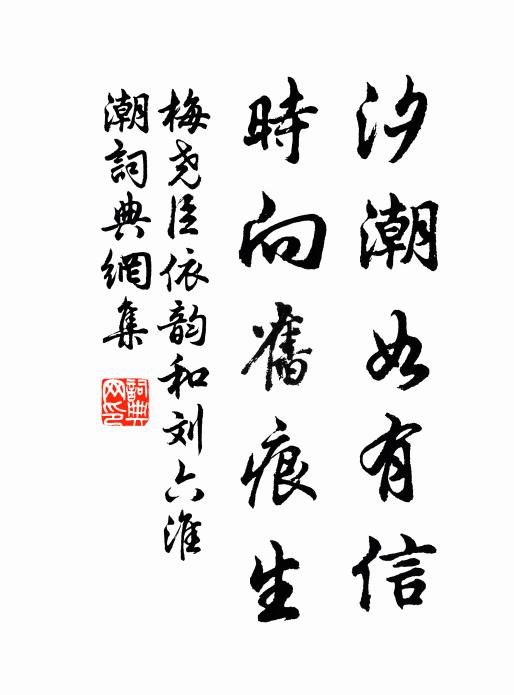 汐潮如有信
時向舊痕生
梅尧臣依韵和刘六淮
潮詞典網集
詞典
网印